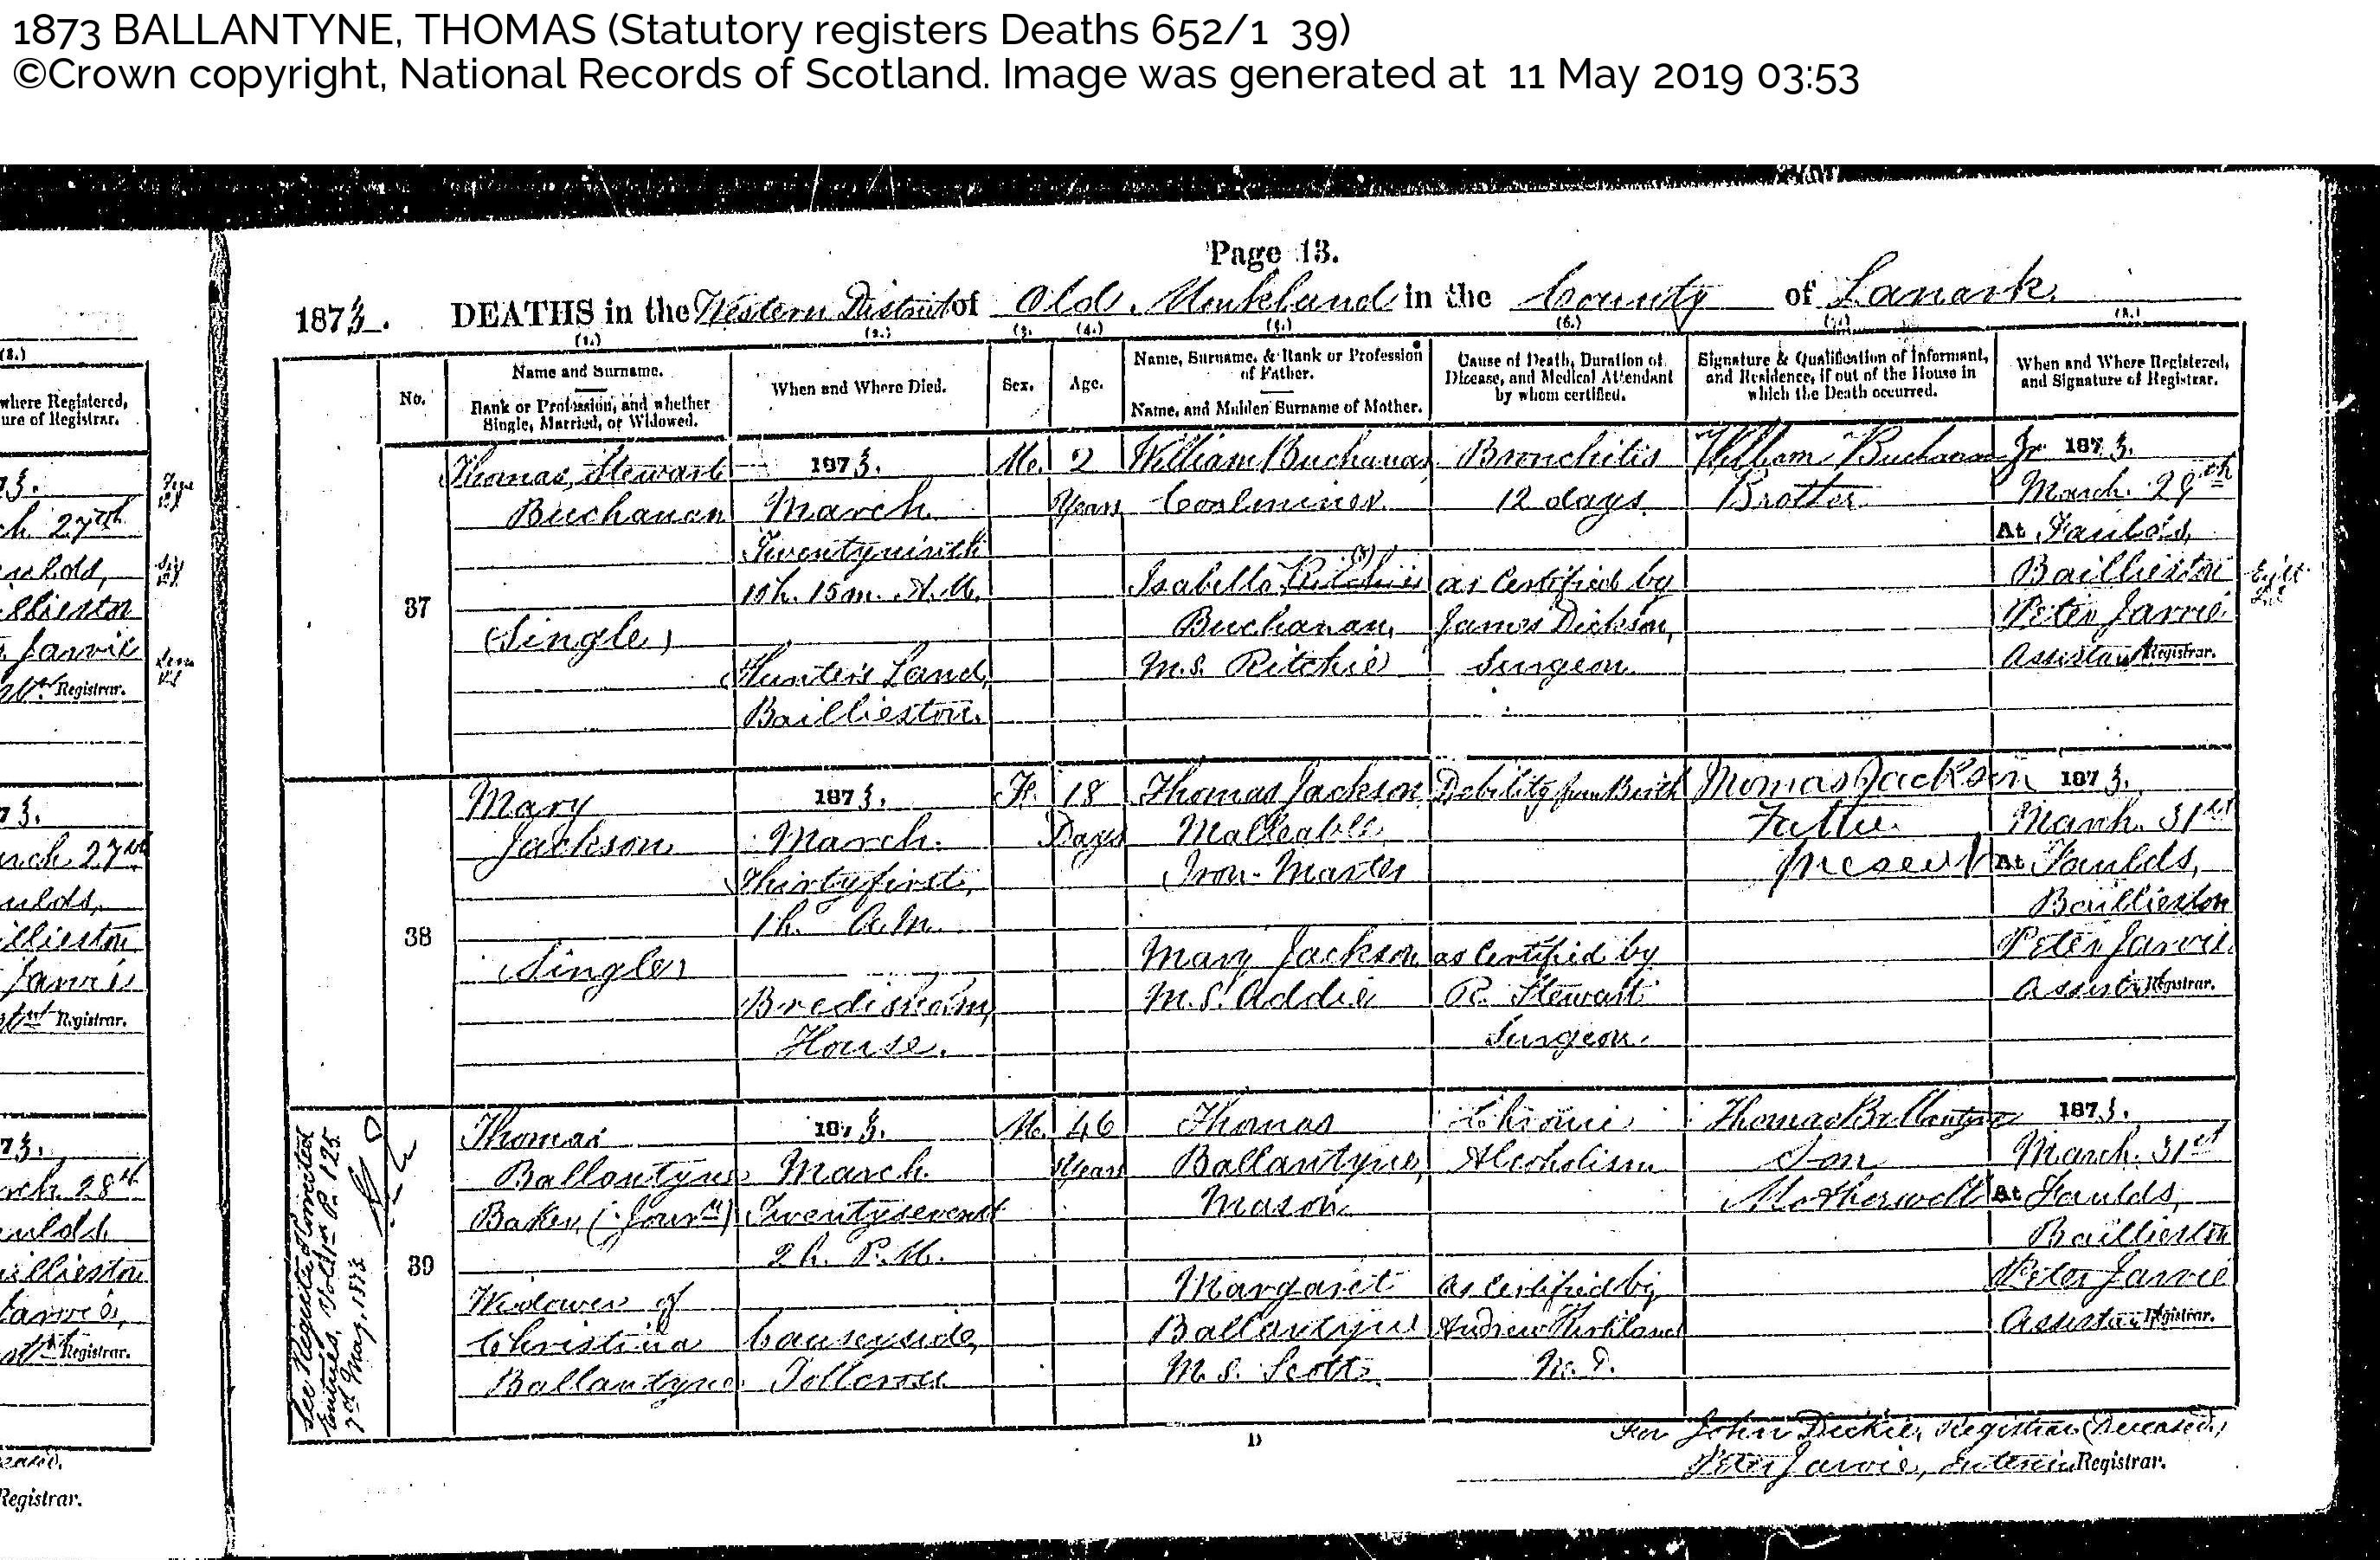 1873 BALLANTYNE, THOMAS (Statutory registers Deaths 652/1 39)
©Crown copyright, National Records of Scotland. Image was generated at 11 May 2019 03:53
Page 13.
1873. DEATHS in the Western District of Old Monkland in the County of Lanark
(1.) (2.) (3. (4.) (5.) (6.) (7.) (8.)
No.
Name and Surname.
Rank or Profession, and whether
Single, Married, or Widowed.
When and Where Died.
Sex.
Age.
Name, Surname, & Rank or Profession
of Father.
Name, and Maiden Surname of Mother.
Cause of Death, Duration of
Disease, and Medical Attendant
by whom certified.
Signature & Qualification of Informant,
and Residence, if out of the House in
which the Death occurred.
When and Where Registered,
and Signature of Registrar.
37
Thomas Stewart
Buchanan
(Single)
1873.
March
Twentyninth
11h. 15m. A.M.
Hunter's Land,
Baillieston.
M.
2
Years
William Buchanan
Coalminer
Isabella Ritchie
Buchanan,
M.S. Ritchie
Bronchitis
12 days
as Certified by
James Dickson,
Surgeon
William Buchanan Jr
Brother
1873.
March 29th
At Faulds,
Baillieston
Peter Jarvie
Assistant Registrar.
38
Mary
Jackson
(Single)
1873.
March
Thirtyfirst,
1h. A.M.
Bredisholm
House.
F.
18
Days
Thomas Jackson
Malleable
Iron-Master
Mary Jackson
M.S. Addie
Debility from Birth
as Certified by
R. Stewart
Surgeon.
Thomas Jackson
Father
Present
1873.
March 31st
At Faulds,
Baillieston
Peter Jarvie
Assist. Registrar.
See Register of Corrected
Entries, Vol. 1st P. 125
2nd May, 1873
39
Thomas
Ballantyne
Baker, (Journ)
Widower of
Christina
Ballantyne
1873.
March
Twentyseventh
2h. P.M.
Causeyside,
Tollcross
M.
46
Years
Thomas
Ballantyne,
Mason
Margaret
Ballantyne
M.S. Scott
Chronic
Alcoholism
as Certified by
Andrew Kirkland
M.D.
Thomas Ballantyne
Son
Motherwell
1873.
March 31st
At Faulds,
Baillieston
Peter Jarvie
Assistant Registrar.
D
For John Dickie, Registrar (Deceased.)
Peter Jarvie, Interim Registrar.